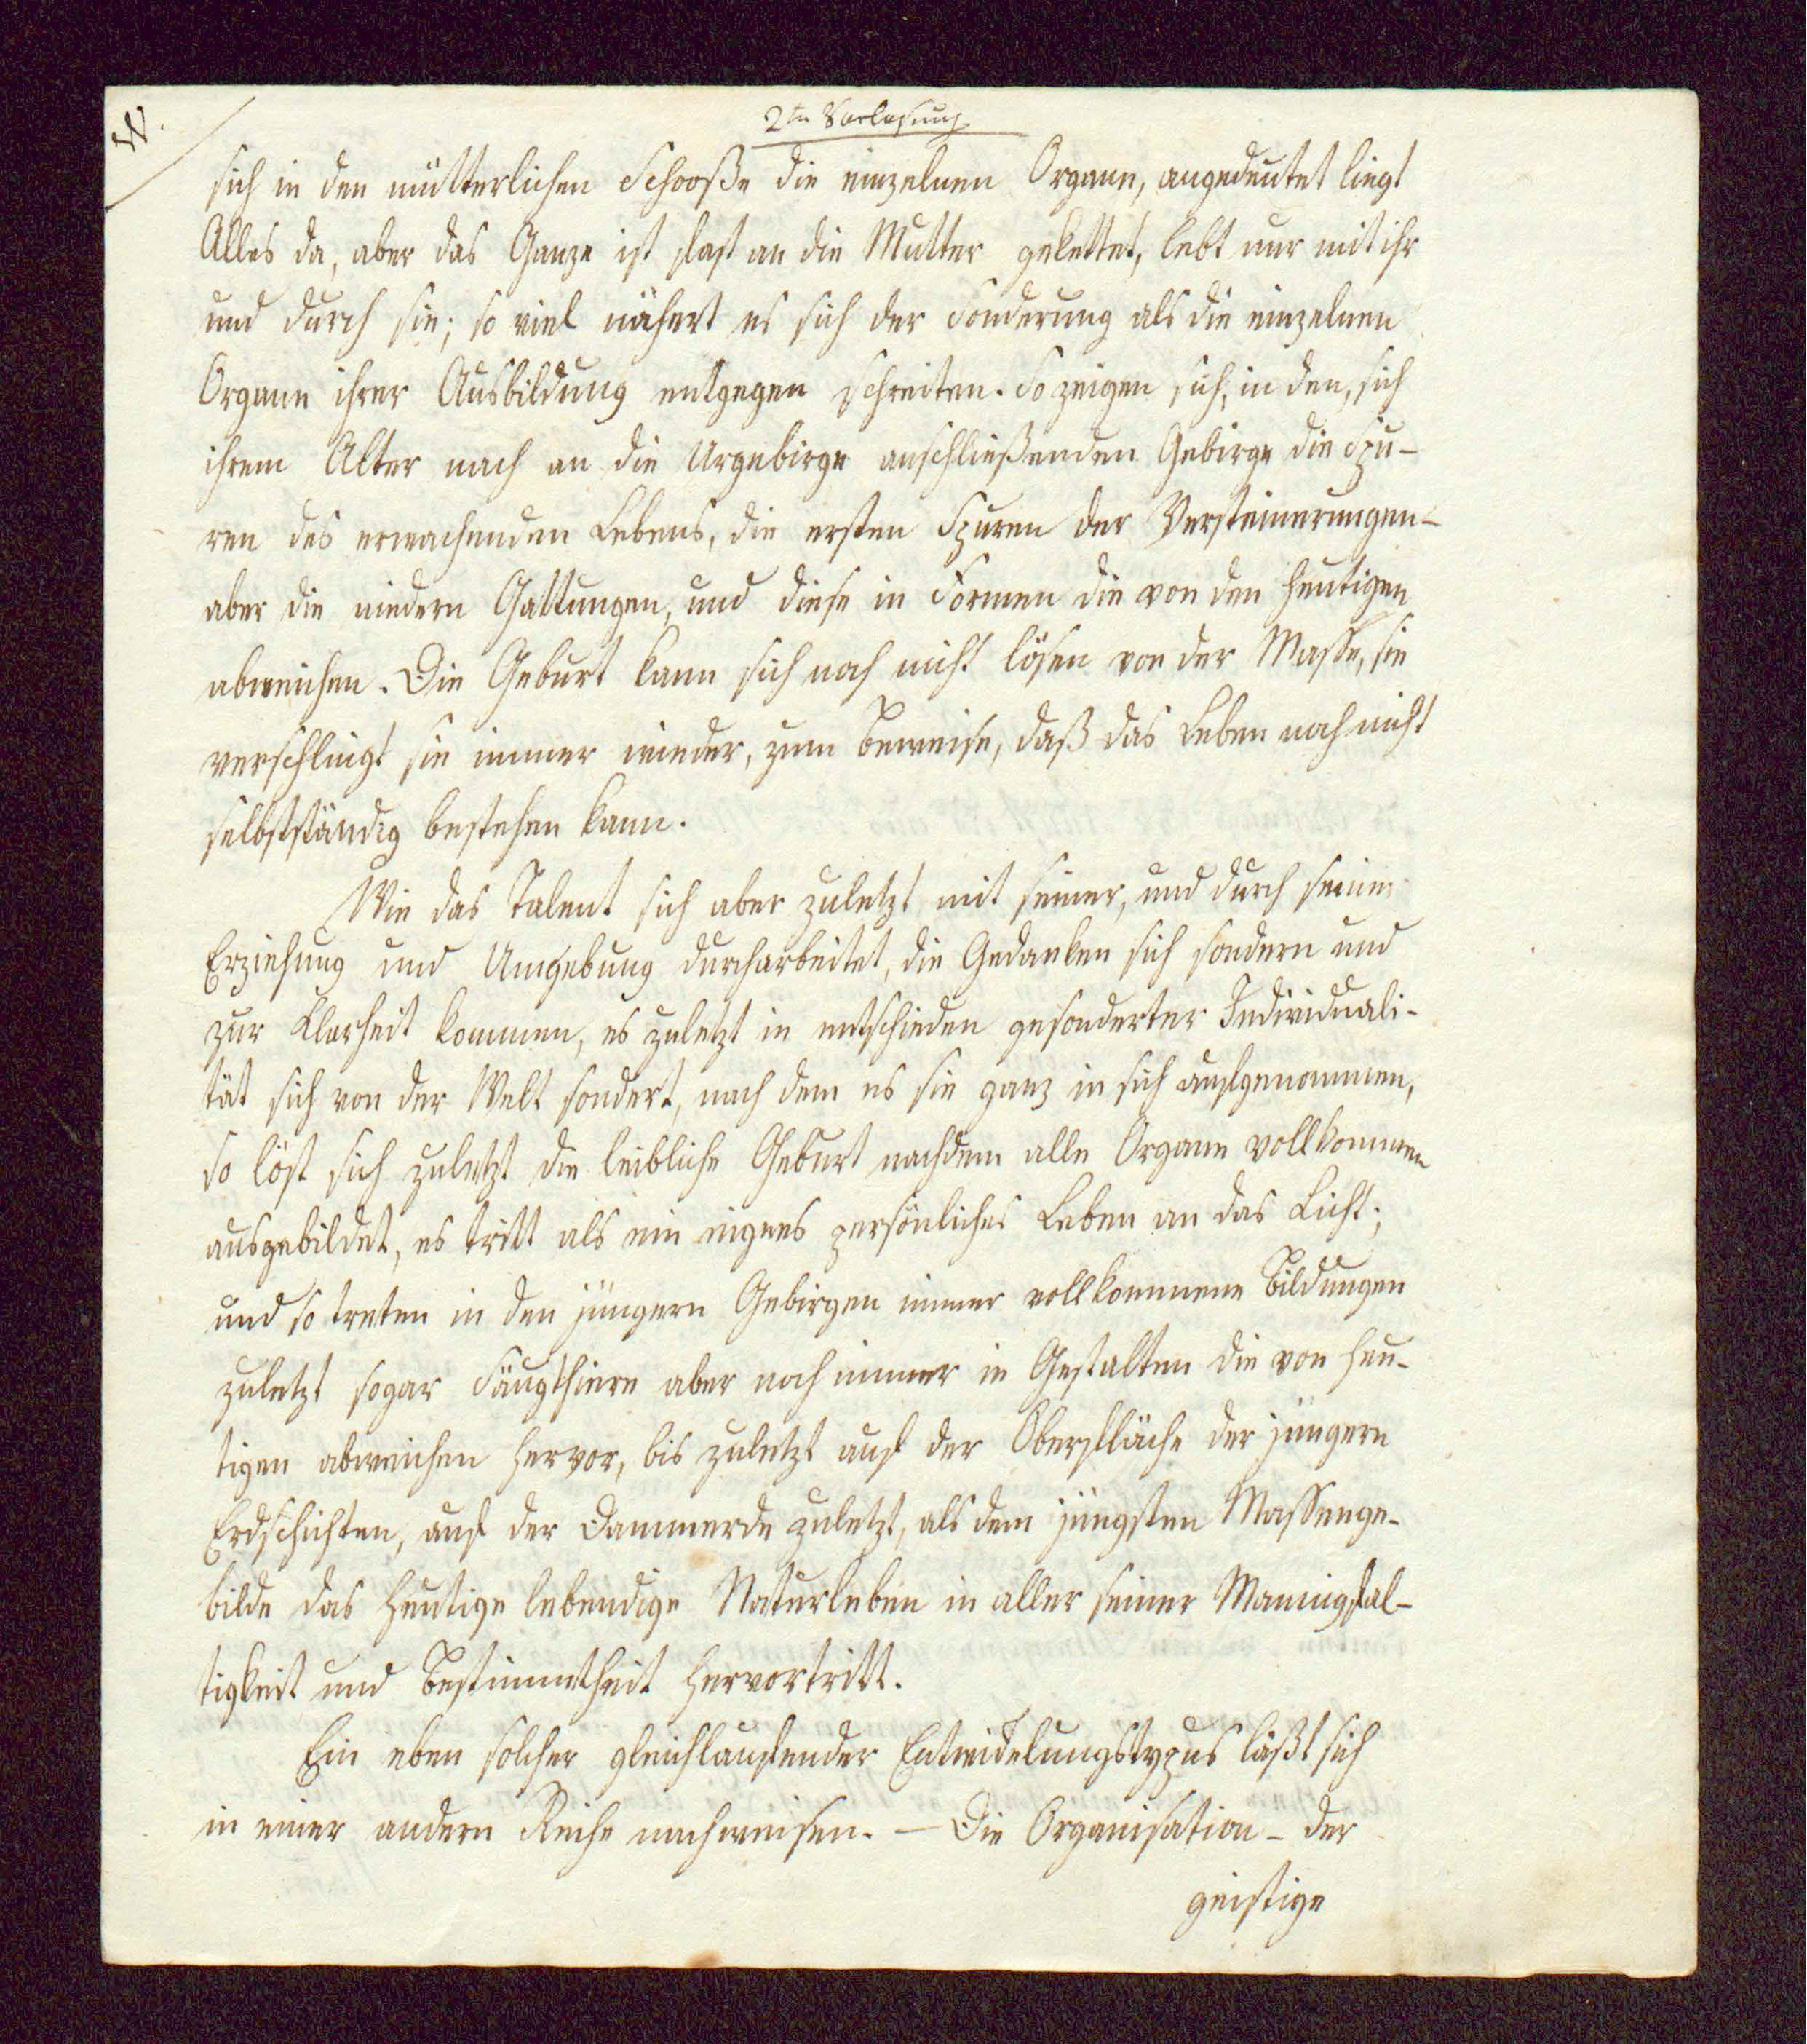 2te Vorlesung
sich in den mütterlichen Schooße die einzelnen Organe, angedeutet liegt
Alles da, aber das Ganze ist fast an die Mutter gekettet, lebt nur mit ihr
und durch sie; so viel nähert es sich der Sonderung als die einzelnen
Organe ihrer Ausbildung entgegen schreiten. So zeigen sich, in den, sich
ihrem Alter nach an die Urgebirge anschließenden Gebirge die Spu-
ren des erwachenden Lebens, die ersten Spuren der Versteinerungen-
aber die niedern Gattungen, und diese in Formen die von den heutigen
abweichen. Die Geburt kann sich noch nicht lösen von der Masse, sie
verschlingt sie immer wieder, zum Beweise, daß das Leben noch nicht
selbstständig bestehen kann.
Wie das Talent sich aber zuletzt mit seiner, und durch seine
Erziehung und Umgebung durcharbeitet, die Gedanken sich sondern und
zur Klarheit kommen, es zuletzt in entschieden gesonderter Individuali-
tät sich von der Welt sondert, nach dem es sie ganz in sich aufgenommen,
so löst sich zuletzt die leibliche Geburt nachdem alle Organe vollkommen
ausgebildet, es tritt als ein eignes persönliches Leben an das Licht;
und so treten in den jüngern Gebirgen immer vollkommene Bildungen
zuletzt sogar Säugthiere aber noch immer in Gestalten die von heu-
tigen abweichen hervor, bis zuletzt auf der Oberfläche der jüngern
Erdschichten, auf der Dammerde zuletzt, als dem jüngsten Massenge-
bilde das heutige lebendige Naturleben in aller seiner Mannigfal-
tigkeit und Bestimmtheit hervortritt.
Ein eben solcher gleichlaufender Entwickelungstypus läßt sich
in einer andern Reihe nachweisen. — Die Organisation - der
geistige